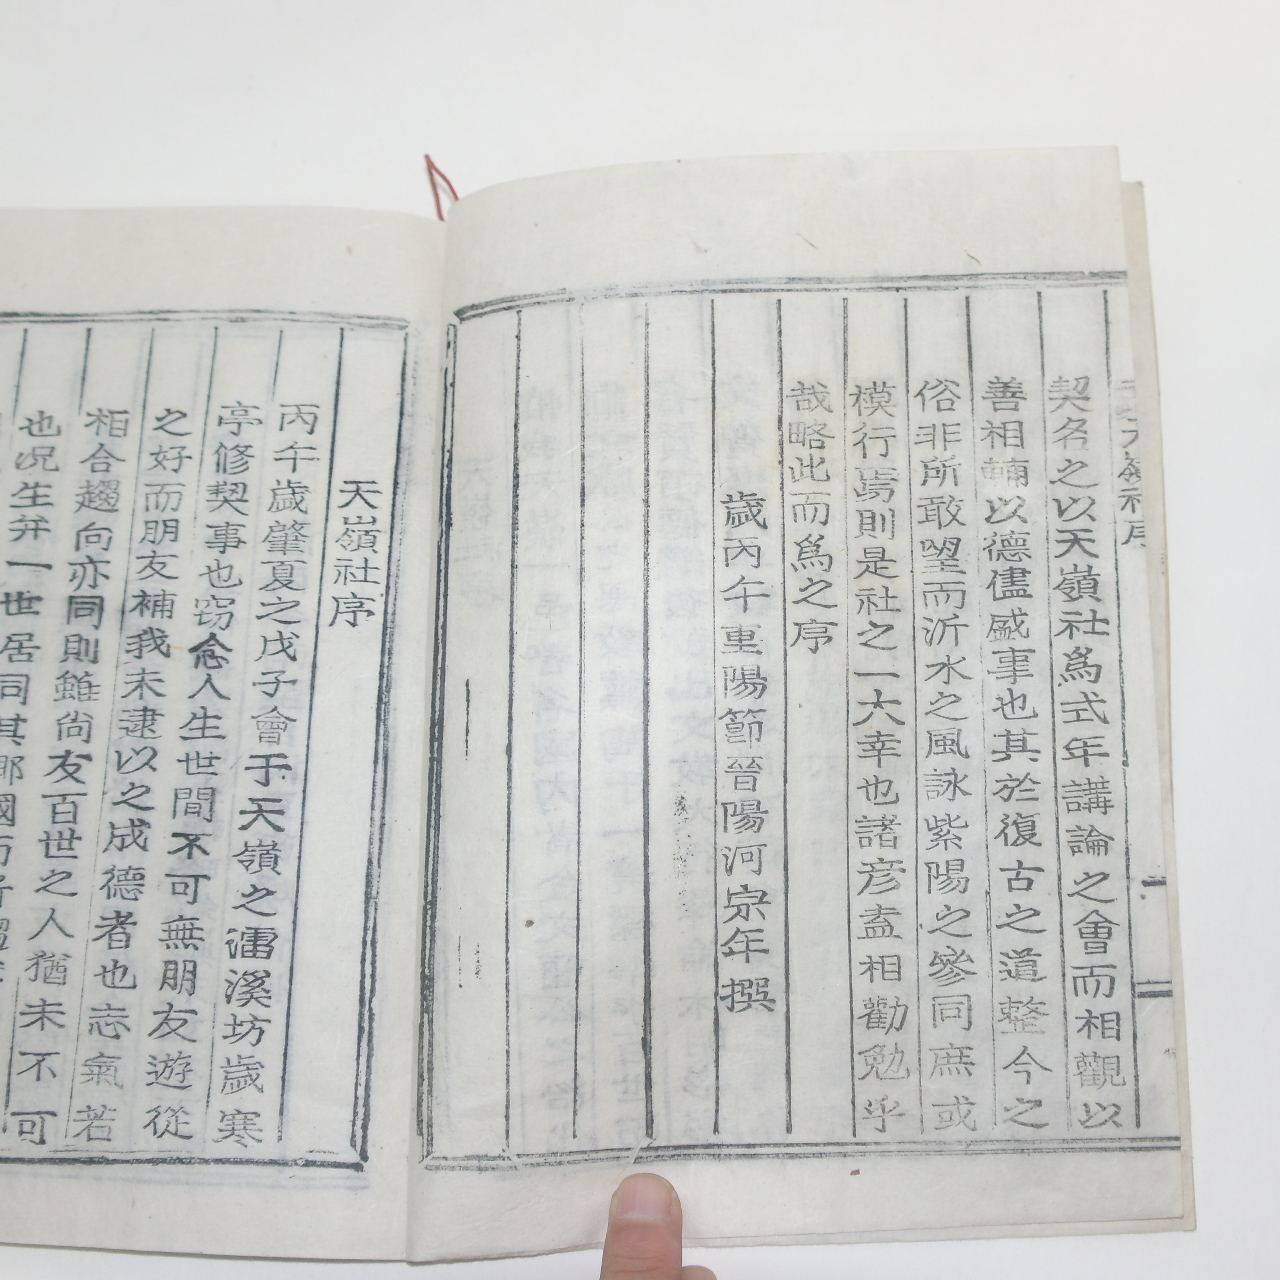 契名之以天嶺社爲式年講論之會而相觀以
善相輔以德儘盛事也其於復古之道整今之
俗非所敢望而沂水之風詠紫陽之參同庶或
模行焉則是社之一大幸也諸彦盍相勸勉乎
哉略此而爲之序
歲丙午重陽節晉陽河宗年撰
天嶺社序
丙午歲肇夏之戊子會于天嶺之濡溪坊歲寒
亭修契事也窃念人生世間不可無朋友遊從
之好而朋友補我未逮以之成德者也志氣若
相合趨向亦同則雖尙友百世之人猶未不可
也况生并一世居同其鄕國而